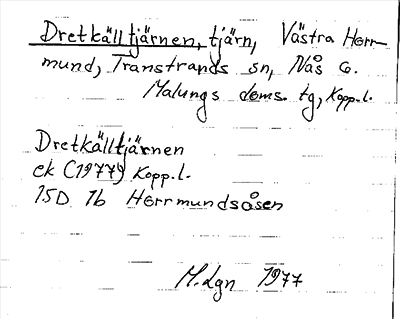 Dretkälltjärnen, tjärn, Västra Herr-
mund, Transtrands sn, Nås 6.
Malungs doms. tg, Kopp.l.
Dretkälltjärnen
ek (1977) Kopp.l.
15D 1b Herrmundsåsen
M.Lgn 1977